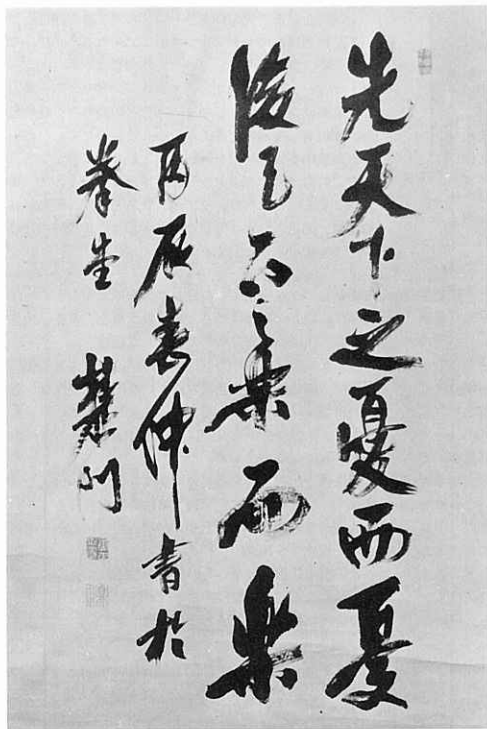 先天下之憂而憂
後天下之樂而樂
丙辰春仲書於
門